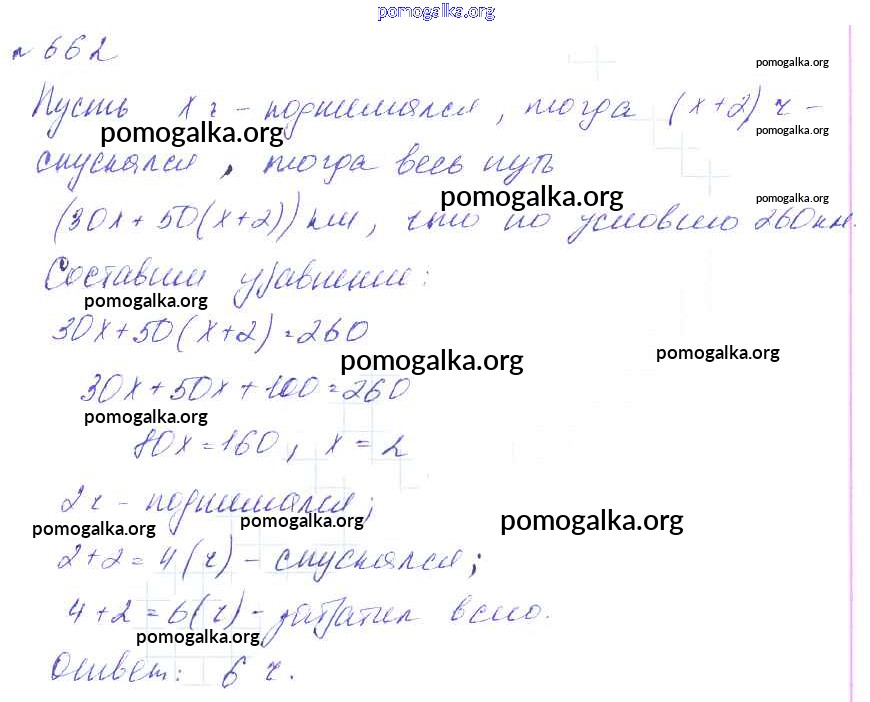 pomogalka.org
№ 662
pomogalka.org
Пусть x ч - поднимался, тогда (x+2) ч -
pomogalka.org
pomogalka.org
спускался, тогда весь путь
pomogalka.org
pomogalka.org
(30x + 50(x+2)) км, что по условию 260 км.
Составим уравнение:
pomogalka.org
30x + 50(x+2) = 260
pomogalka.org
pomogalka.org
30x + 50x + 100 = 260
pomogalka.org
80x = 160, x = 2
2 ч - поднимался;
pomogalka.org
pomogalka.org
pomogalka.org
2+2 = 4 (ч) - спускался;
4+2 = 6 (ч) - затратил всего.
pomogalka.org
Ответ: 6 ч.